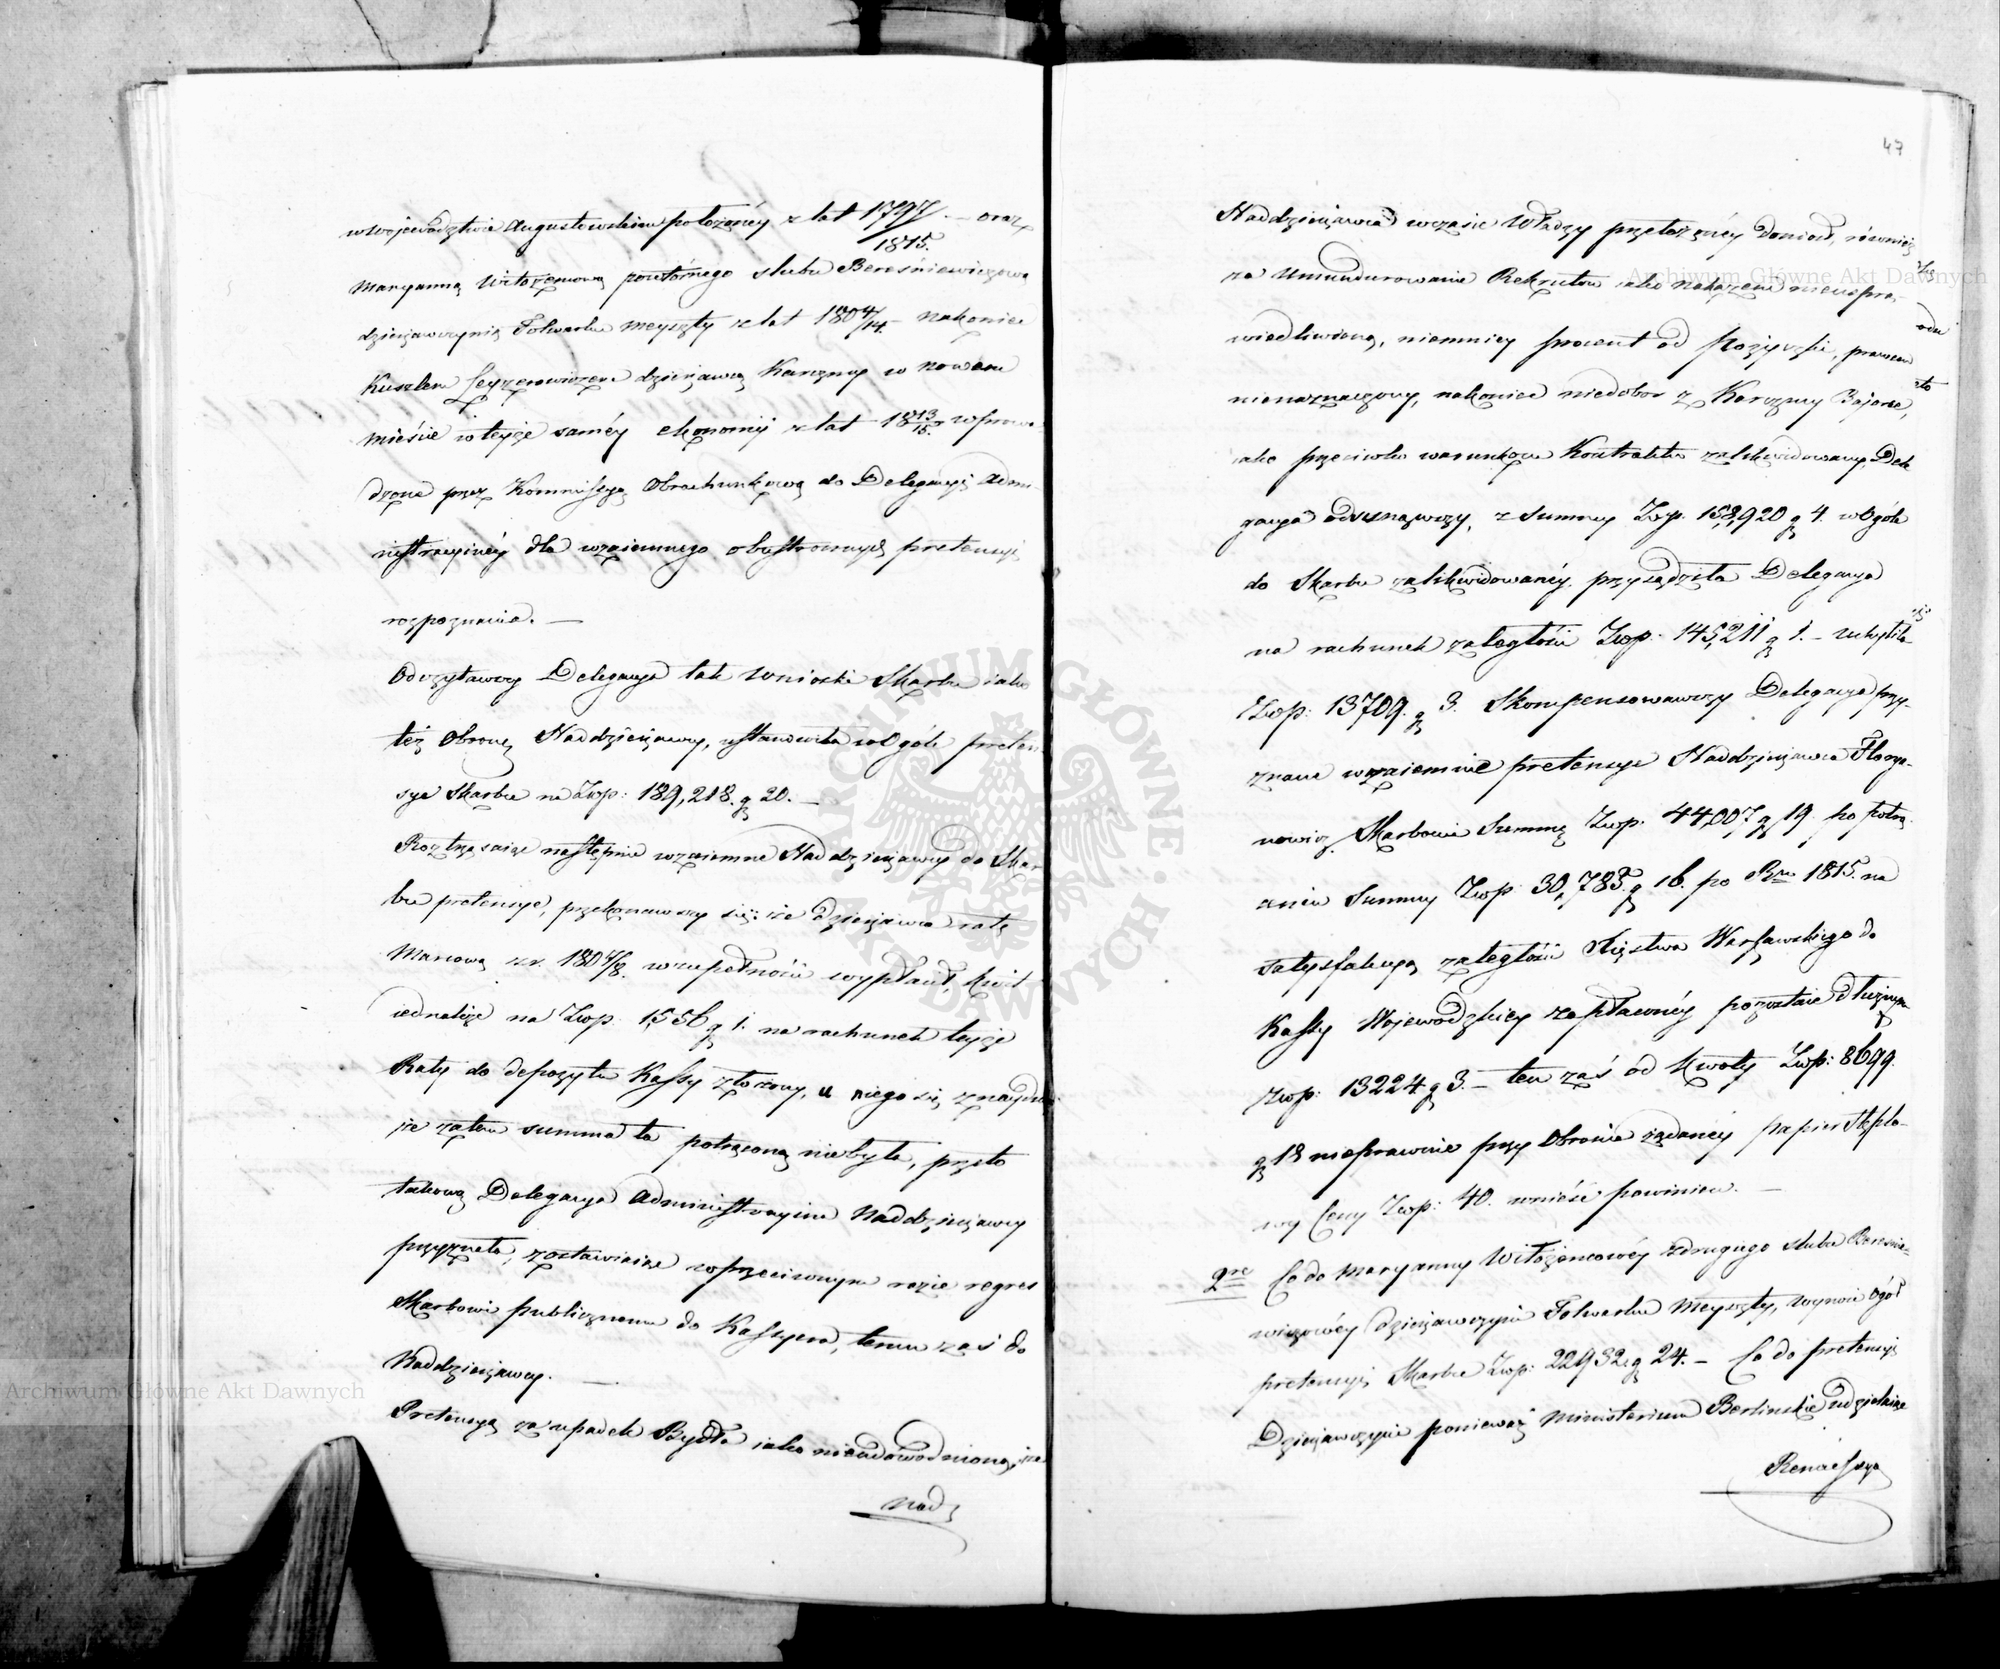 wwojewództwie Augustowskim położonéy z lat 1797/1815. — oraz
Maryanną Witozencową powtórnego slubu Bereśniewiczową
dzierżawczynią Folwarku Meyszty z lat 1804/14 — nakoniec
Kuszlem Leyzerowiczem dzierżawcą Karczmy w nowem
mieście w teyże saméy ekonomij z lat 1813/15. wprowa-
dzone przez Kommissyą Obrachunkową do Delegacyi Admi-
nistracyinéy dla wzaiemnego obustronnych pretensyi
rozpoznania. —
Odczytawszy Delegacya tak wnioski Skarbu iako
też Obronę Naddzierżawcy, ustanowiła wOgóle preten-
sye Skarbu na Złop: 189,218. g 20. —
Roztrząsaiąc następnie wzaiemne Naddzierżawcy do Skar-
bu pretensye, przekonawszy się; iże dzierżawca ratę
Marcową z r. 1807/8. wzupełności wypłacił, kwit
iednakże na Złop. 1556 g 1. na rachunek teyże
Raty do depozytu Kassy złożony, u niego się znayduie
że zatem summa ta potrąconą niebyła, przeto
takową Delegacya Administracyina Naddzierżawcy
przyznała, zostawiaiąc wprzeciwnym razie regres
Skarbowi publicznemu do Kassyera, temu zaś do
Naddzierżawcy. —
Pretensyą za upadek Bydła iako nieudowodnioną, że
Nad
47
Naddzierżawca wczasie Władzy przełożonéy doniósł, również
za Umundurowanie Rekrutów iako nakazem nieuspra-
wiedliwioną, niemniey procent od Pożyczki, prawem
nienaznaczony, nakoniec niedobor z Karczmy Bajorze,
iako przeciwko warunkom Kontraktu zalikwidowany, Dele-
gacya odsunąwszy, z Summy Złp. 158,920 g 4. wOgóle
do Skarbu zalikwidowanéy. przysądziła Delegacya
na rachunek zaległości Złop: 145,211 g 1. — uchyliła
Złop: 13709. g 3. Skompensowawszy Delegacya przy-
znane wzaiemnie pretensye Naddzierżawca Florya-
nowicz Skarbowi Summę Złop: 44,007 g 19. po potrą-
ceniu Summy Złop 30,783. g 16. po Rm 1815. na
satysfakcyą zaległości Xięstwa Warszawskiego do
Kassy Wojewódzkiey zapłaconéy pozostaie dłużnym
Złop: 13224 g 3. — ten zaś od kwoty Złop: 8699.
g 18 nieprawnie przy Obronie żądanéy papier Stęplo-
wy Ceny Złop: 40. wnieść powinien. —
2re Co do Maryanny Witozencowéy zdrugiego slubu Bereśnie-
wiczowéy dzierżawczyni Folwarku Meyszty, wynosi ogół
pretensyi Skarbu Złop: 22932 g 24. — Co do pretensyi
Dzierżawczyni ponieważ Ministerium Berlinskie udzielaiąc
Renaissya
Archiwum Główne Akt Dawnych
Archiwum Główne Akt Dawnych
ARCHIWUM GŁÓWNE AKT DAWNYCH